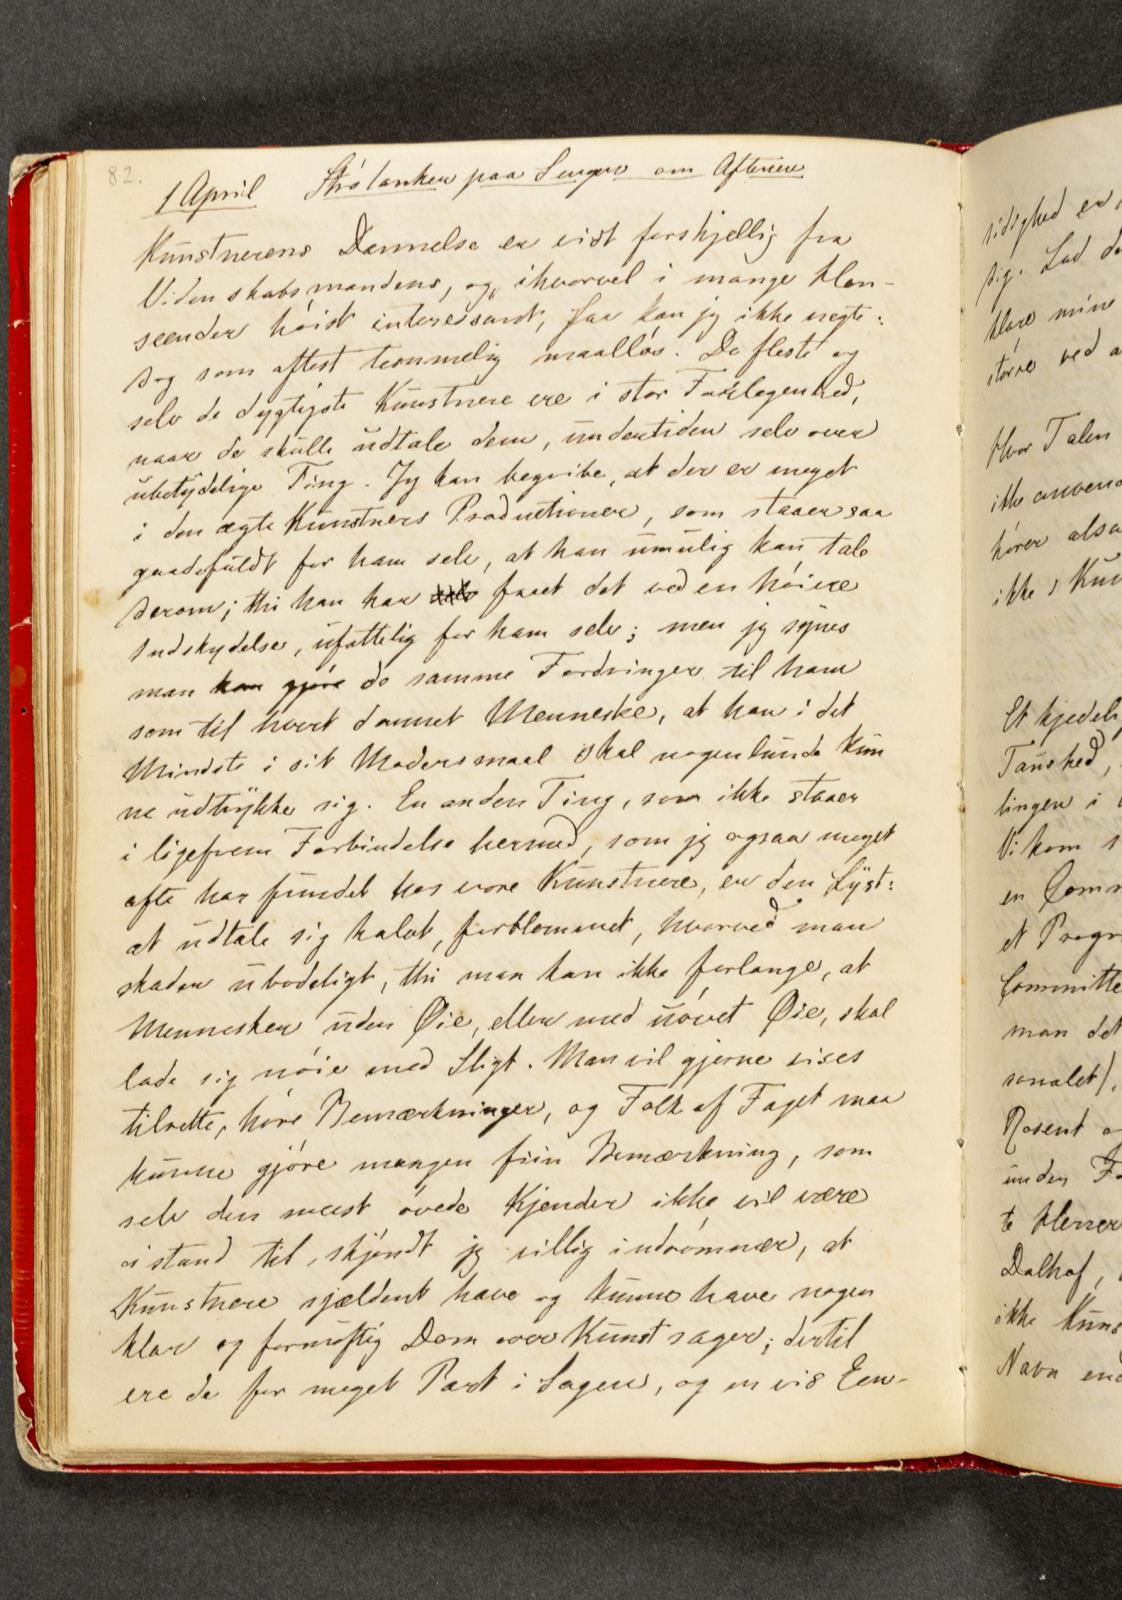 82.
1 April Strötanker paa Sengen om Aftenen
Kunstnerens Dannelse er vist forskjellig fra
Videnskabsmandens, og, ihvorvel i mange Hen-
seender höist interessant, saa kan jeg ikke negte:
dog som oftest temmelig maallös. De fleste og
selv de dygtigste Kunstnere ere i stor Forlegenhed,
naar de skulle udtale dem, undertiden selv over
ubetydelige Ting. Jeg kan begribe, at der er meget
i den ægte Kunstners Productioner, som staaer saa
gaadefuldt for ham selv, at han umulig kan tale
derom; thi han har faaet det ved en höiere
Indskydelse, ufattelig for ham selv; men jeg synes
man kan gjöre de samme Fordringer til ham
som til hvert dannet Menneske, at han i det
Mindste i sit Modersmaal skal nogenlunde kun
ne udtrykke sig. En anden Ting, som ikke staaer
i ligefrem Forbindelse hermed, som jeg ogsaa meget
ofte har fundet hos vore Kunstnere, er den Lyst:
at udtale sig halvt, forblommet, hvorved man
skader ubodeligt, thi man kan ikke forlange, at
Mennesker uden Øie, eller med uövet Øie, skal
lade sig nöie med Sligt. Man vil gjerne vises
tilrette, höre Bemærkninger, og Folk af Faget maa
kunne gjöre mangen fiin Bemærkning, som
selv den meest övede Kjender ikke vil være
istand til, skjöndt jeg villig indrömmer, at
Kunstnere sjældent have og kunne have nogen
klar og fornuftig Dom over Kunstsager; dertil
ere de for meget Part i Sagen, og en vis Een-
sidighed er
sig. Lad de
klare mine
större ved a
Hvor Talen
ikke anvend
hörer alsa
ikke i Kun
Et kjedel
Taushed,
lingen i
Vi kom s
en Com
et Progr
Committe
man det
sonalet),
Rosent o
under F
te Herrer
Dalhof,
ikke Kuns
Navn end